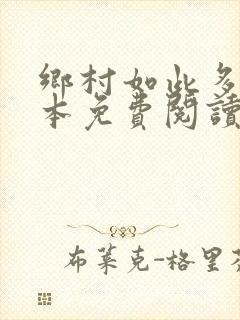 鄉村如此多
本免費閱讀
布萊克-格里芬